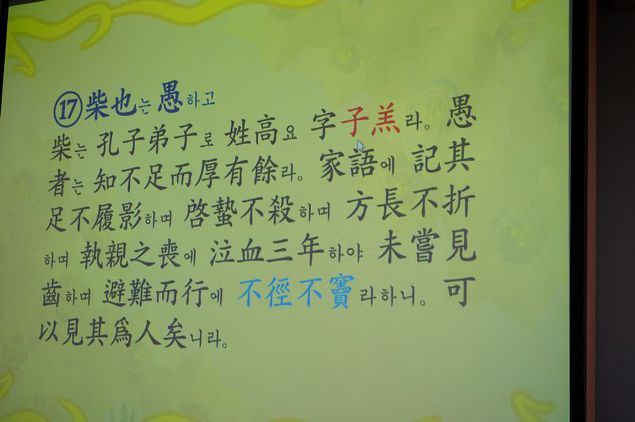 ⑰柴也는 愚하고
柴는 孔子弟子로 姓高요 字子羔라。愚
者는 知不足而厚有餘라。家語에 記其
足不履影하며 啓蟄不殺하며 方長不折
하며 執親之喪에 泣血三年하야 未嘗見
齒하며 避難而行에 不徑不竇라하니。可
以見其爲人矣니라。